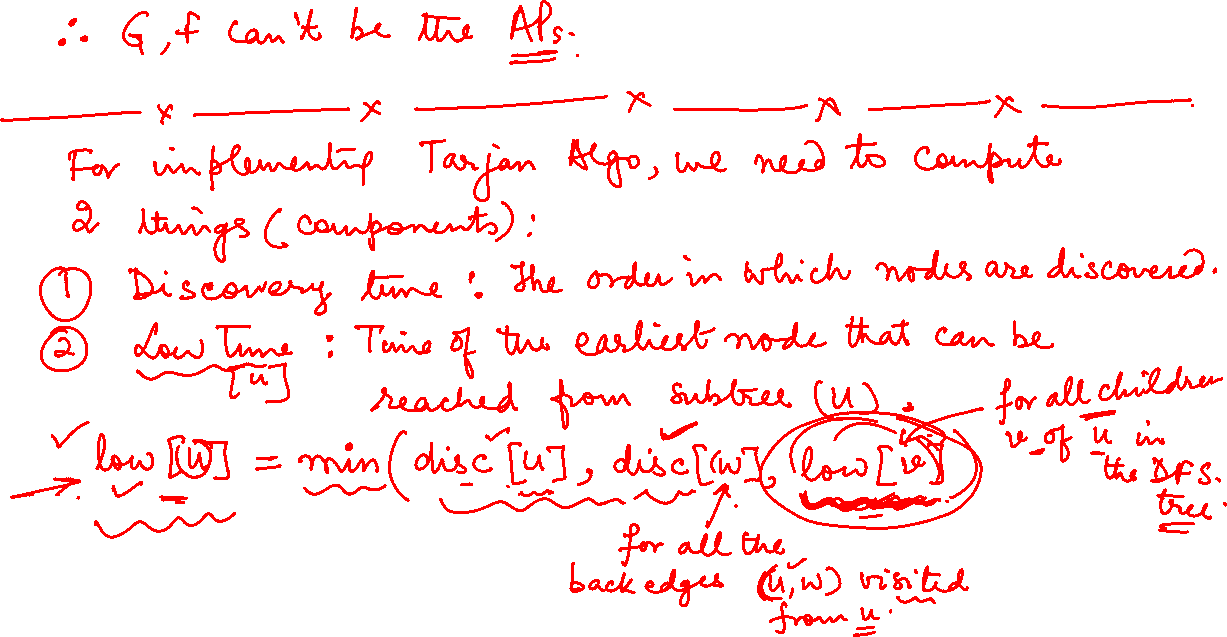 ∴ G, f can't be the APs.
For implementing Tarjan Algo, we need to compute
2 things (components):
① Discovery time : The order in which nodes are discovered.
② Low Time [u] : Time of the earliest node that can be
reached from subtree (u).
low [u] = min( disc [u], disc[w], low [v]
for all children
v of u in
the DFS.
tree.
for all the
back edges (u,w) visited
from u.